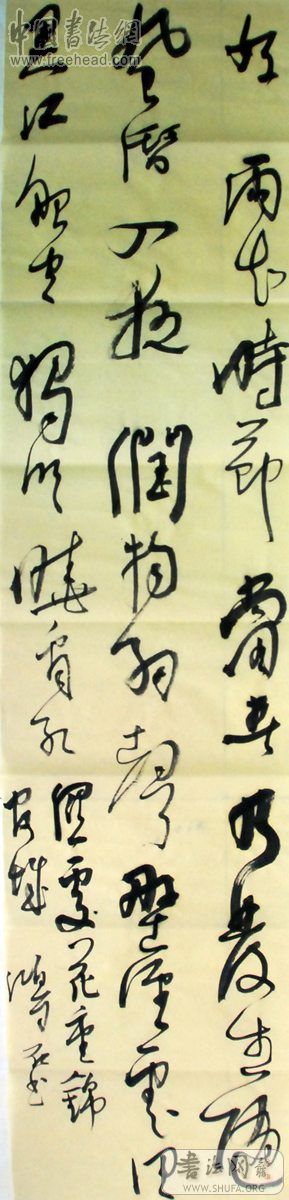 好雨知時節當春乃發生隨
風潛入夜潤物細聲野徑雲俱
黑江船火獨明曉看紅
濕處花重錦
官城
中国書法網
www.freehead.com
书法网
WWW.SHUFA.ORG